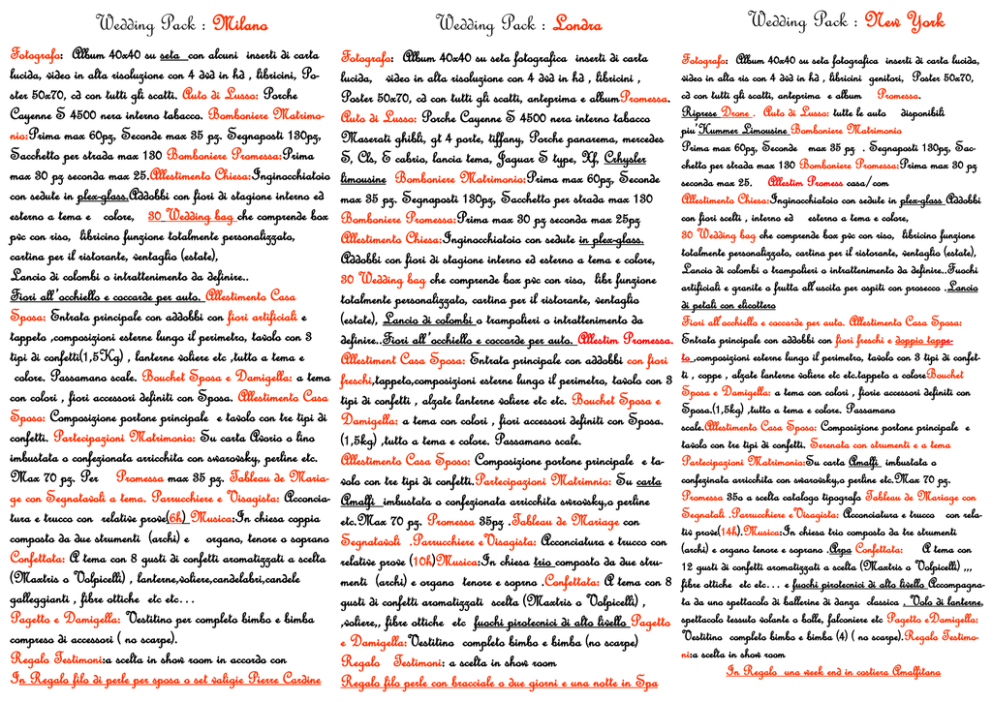 Wedding Pack : Milano
Fotografo: Album 40x40 su seta con alcuni inserti di carta
lucida, video in alta risoluzione con 4 dvd in hd , libricini, Po-
ster 50x70, cd con tutti gli scatti. Auto di Lusso: Porche
Cayenne S 4500 nera interno tabacco. Bomboniere Matrimo-
nio:Prima max 60pz, Seconde max 35 pz. Segnaposti 130pz,
Sacchetto per strada max 130 Bomboniere Promessa:Prima
max 30 pz seconda max 25.Allestimento Chiesa:Inginocchiatoio
con sedute in plex-glass.Addobbi con fiori di stagione interno ed
esterno a tema e colore, 30 Wedding bag che comprende box
pvc con riso, libricino funzione totalmente personalizzato,
cartina per il ristorante, ventaglio (estate),
Lancio di colombi o intrattenimento da definire..
Fiori all'occhiello e coccarde per auto. Allestimento Casa
Sposa: Entrata principale con addobbi con fiori artificiali e
tappeto ,composizioni esterne lungo il perimetro, tavolo con 3
tipi di confetti(1,5Kg) , lanterne voliere etc ,tutto a tema e
colore. Passamano scale. Bouchet Sposa e Damigella: a tema
con colori , fiori accessori definiti con Sposa. Allestimento Casa
Sposa: Composizione portone principale e tavolo con tre tipi di
confetti. Partecipazioni Matrimonio: Su carta Avorio o lino
imbustata o confezionata arricchita con swarovsky, perline etc.
Max 70 pz. Per Promessa max 35 pz. Tableau de Maria-
ge con Segnatavoli a tema. Parrucchiere e Visagista: Acconcia-
tura e trucco con relative prove(6h) Musica:In chiesa coppia
composto da due strumenti (archi) e organo, tenore o soprano
Confettata: A tema con 8 gusti di confetti aromatizzati a scelta
(Maxtris o Volpicelli) , lanterne,voliere,candelabri,candele
galleggianti , fibre ottiche etc etc...
Pagetto e Damigella: Vestitino per completo bimbo e bimba
compreso di accessori ( no scarpe).
Regalo Testimoni:a scelta in show room in accordo con
In Regalo filo di perle per sposa o set valigie Pierre Cardine
Wedding Pack : Londra
Fotografo: Album 40x40 su seta fotografica inserti di carta
lucida, video in alta risoluzione con 4 dvd in hd , libricini ,
Poster 50x70, cd con tutti gli scatti, anteprima e albumPromessa.
Auto di Lusso: Porche Cayenne S 4500 nera interno tabacco
Maserati ghibli, gt 4 porte, tiffany, Porche panarema, mercedes
S, Cls, E cabrio, lancia tema, Jaguar S type, Xf, Crhysler
limousine Bomboniere Matrimonio:Prima max 60pz, Seconde
max 35 pz. Segnaposti 130pz, Sacchetto per strada max 130
Bomboniere Promessa:Prima max 30 pz seconda max 25pz
Allestimento Chiesa:Inginocchiatoio con sedute in plex-glass.
Addobbi con fiori di stagione interno ed esterno a tema e colore,
30 Wedding bag che comprende box pvc con riso, libr funzione
totalmente personalizzato, cartina per il ristorante, ventaglio
(estate), Lancio di colombi o trampolieri o intrattenimento da
definire..Fiori all'occhiello e coccarde per auto. Allestim Promessa.
Allestiment Casa Sposa: Entrata principale con addobbi con fiori
freschi,tappeto,composizioni esterne lungo il perimetro, tavolo con 3
tipi di confetti , alzate lanterne voliere etc etc. Bouchet Sposa e
Damigella: a tema con colori , fiori accessori definiti con Sposa.
(1,5kg) ,tutto a tema e colore. Passamano scale.
Allestimento Casa Sposo: Composizione portone principale e ta-
volo con tre tipi di confetti.Partecipazioni Matrimnio: Su carta
Amalfi imbustata o confezionata arricchita swrovsky,o perline
etc.Max 70 pz. Promessa 35pz .Tableau de Mariage con
Segnatavoli .Parrucchiere e Visagista: Acconciatura e trucco con
relative prove (10h)Musica:In chiesa trio composto da due stru-
menti (archi) e organo tenore e soprno .Confettata: A tema con 8
gusti di confetti aromatizzati scelta (Maxtris o Volpicelli) ,
,voliere,, fibre ottiche etc fuochi pirotecnici di alto livello Pagetto
e Damigella:Vestitino completo bimbo e bimba (no scarpe)
Regalo Testimoni: a scelta in show room
Regalo filo perle con bracciale o due giorni e una notte in Spa
Wedding Pack : New York
Fotografo: Album 40x40 su seta fotografica inserti di carta lucida,
video in alta ris con 4 dvd in hd , libricini genitori, Poster 50x70,
cd con tutti gli scatti, anteprima e album Promessa.
Riprese Drone . Auto di Lusso: tutte le auto disponibili
piu'Hummer Limousine Bomboniere Matrimonio
Prima max 60pz, Seconde max 35 pz . Segnaposti 130pz, Sac-
chetto per strada max 130 Bomboniere Promessa:Prima max 30 pz
seconda max 25. Allestim Promess casa/com
Allestimento Chiesa:Inginocchiatoio con sedute in plex-glass Addobbi
con fiori scelti , interno ed esterno a tema e colore,
30 Wedding bag che comprende box pvc con riso, libricino funzione
totalmente personalizzato, cartina per il ristorante, ventaglio (estate),
Lancio di colombi o trampolieri o intrattenimento da definire..Fuochi
artificiali e granite o frutta all'uscita per ospiti con prosecco .Lancio
di petali con elicottero
Fiori all'occhiello e coccarde per auto. Allestimento Casa Sposa:
Entrata principale con addobbi con fiori freschi e doppio tappe-
to ,composizioni esterne lungo il perimetro, tavolo con 3 tipi di confet-
ti , coppe , alzate lanterne voliere etc etc.tappeto a coloreBouchet
Sposa e Damigella: a tema con colori , fiorie accessori definiti con
Sposa.(1,5kg) ,tutto a tema e colore. Passamano
scale.Allestimento Casa Sposo: Composizione portone principale e
tavolo con tre tipi di confetti. Serenata con strumenti e a tema
Partecipazioni Matrimonio:Su carta Amalfi imbustata o
confezinata arricchita con swarovsky,o perline etc.Max 70 pz.
Promessa 35o a scelta catalogo tipografo Tableau de Mariage con
Segnatali .Parrucchiere e Visagista: Acconciatura e trucco con rela-
tiv prove(14h).Musica:In chiesa trio composto da tre strumenti
(archi) e organo tenore e soprano .Arpa Confettata: A tema con
12 gusti di confetti aromatizzati a scelta (Maxtris o Volpicelli) ,,,
fibre ottiche etc etc... e fuochi pirotecnici di alto livello Accompagna-
ta da uno spettacolo di ballerine di danza classica . Volo di lanterne,
spettacolo tessuto volante o bolle, falconiere etc Pagetto eDamigella:
Vestitino completo bimbo e bimba (4) ( no scarpe).Regalo Testimo-
ni:a scelta in show room
In Regalo una week end in costiera Amalfitana